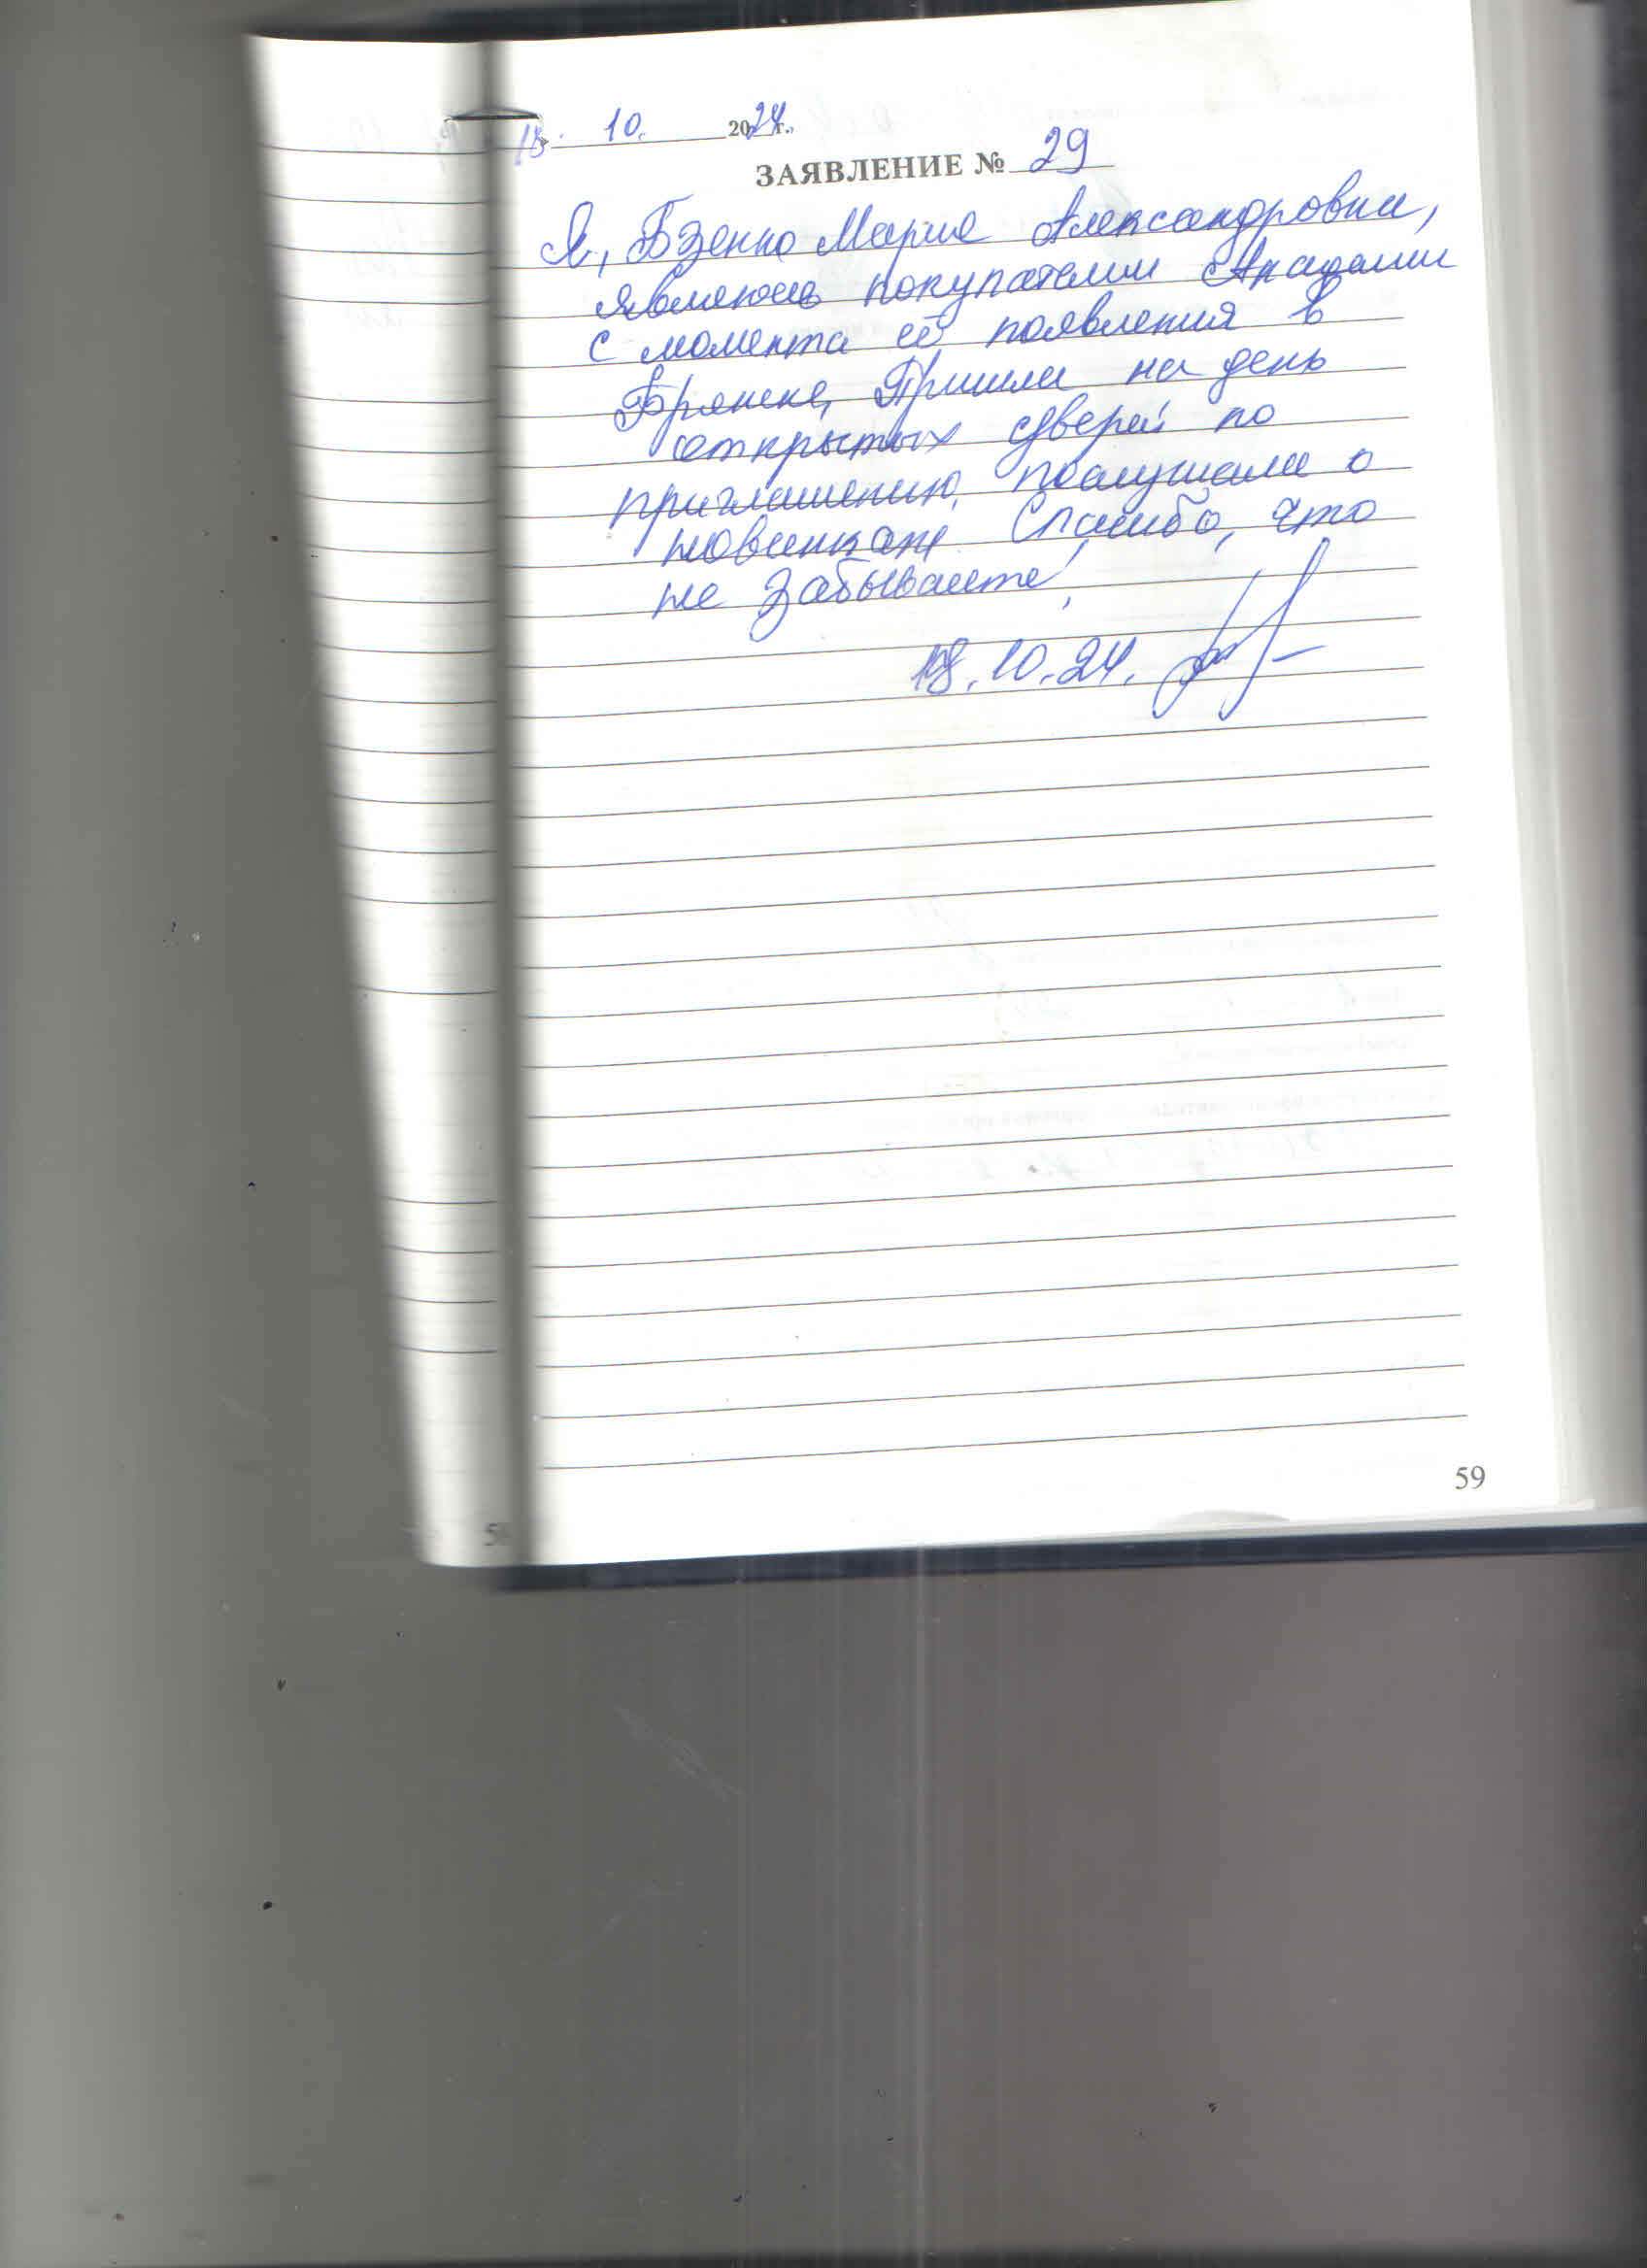 18. 10. 2024 г.
ЗАЯВЛЕНИЕ № 29
Я, Бзенко Мария Александровна,
являюсь покупателем Академии
с момента её появления в
Брянске, Пришли на день
открытых дверей по
приглашению, послушали о
новинках. Спасибо, что
не забываете!
18.10.24.
59